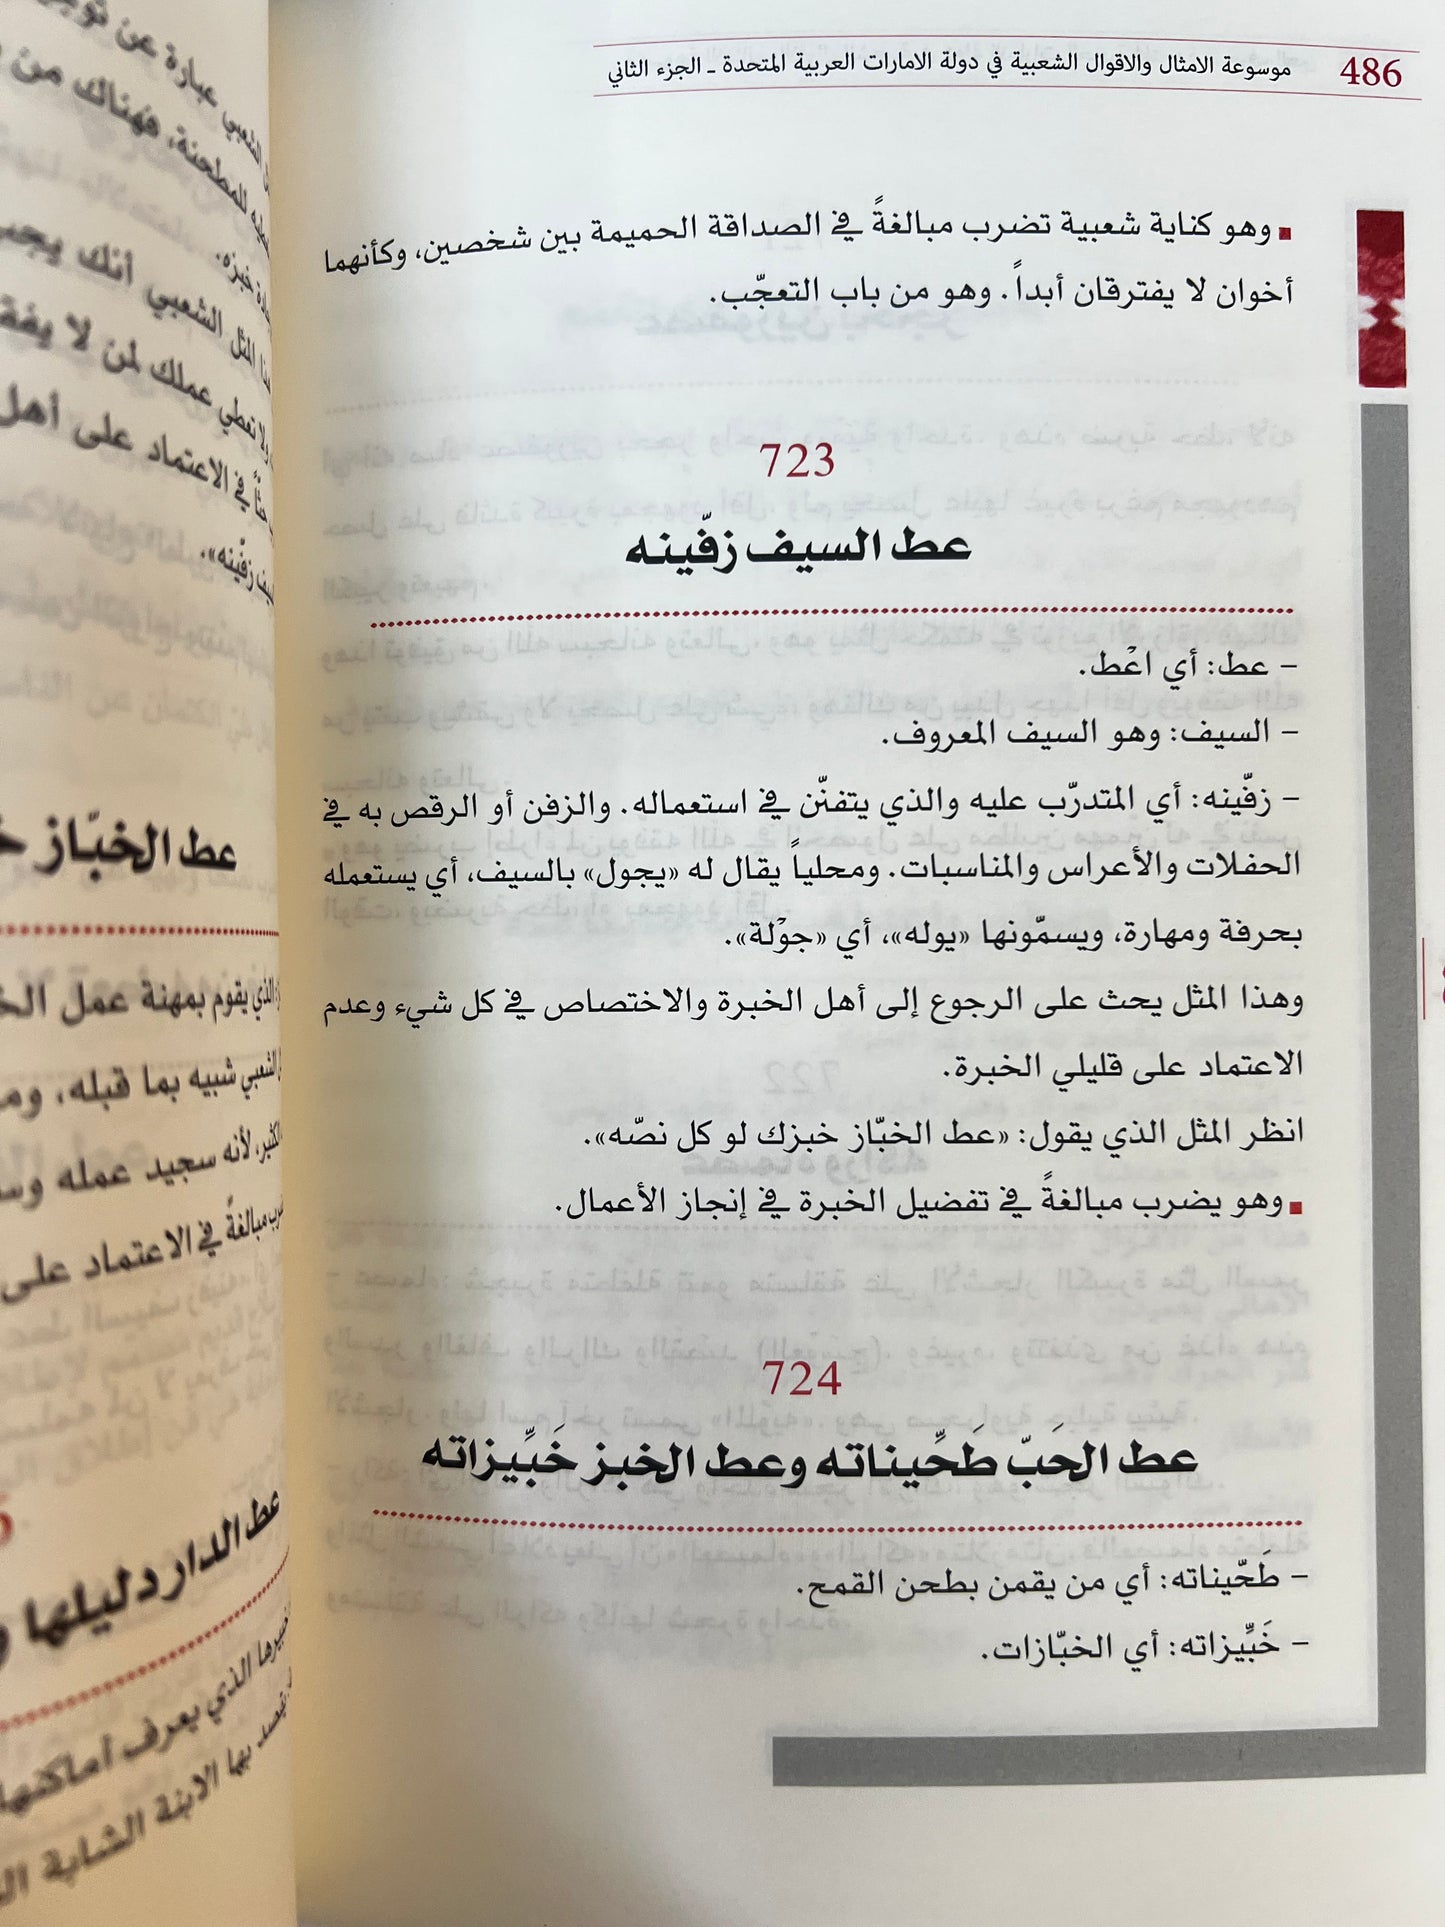 486 موسوعة الامثال والاقوال الشعبية في دولة الامارات العربية المتحدة ـ الجزء الثاني
■ وهو كناية شعبية تضرب مبالغةً في الصداقة الحميمة بين شخصين، وكأنهما
أخوان لا يفترقان أبداً. وهو من باب التعجّب.
723
عط السيف زفّينه
– عط: أي اعْط.
– السيف: وهو السيف المعروف.
– زفّينه: أي المتدرّب عليه والذي يتفنّن في استعماله. والزفن أو الرقص به في
الحفلات والأعراس والمناسبات. ومحلياً يقال له «يجول» بالسيف، أي يستعمله
بحرفة ومهارة، ويسمّونها «يوله»، أي «جوْلة».
وهذا المثل يحث على الرجوع إلى أهل الخبرة والاختصاص في كل شيء وعدم
الاعتماد على قليلي الخبرة.
انظر المثل الذي يقول: «عط الخبّاز خبزك لو كل نصّه».
■ وهو يضرب مبالغةً في تفضيل الخبرة في إنجاز الأعمال.
724
عط الحَبّ طَحِّيناته وعط الخبز خَبِّيزاته
– طَحّيناته: أي من يقمن بطحن القمح.
– خَبِّيزاته: أي الخبّازات.
عبارة عن
الشعبي
للمطحنة، فهناك من
خبزه.
المثل الشعبي أنك يجب
عملك لمن لا
في الاعتماد على أهل
زفّينه».
عط الخبّاز
الذي يقوم بمهنة عمل
الشعبي شبيه بما قبله،
لأنه سجيد عمله
مبالغةً في الاعتماد على
عط الدار دليلها
الذي يعرف أماكنها
بها الابنة الشابة